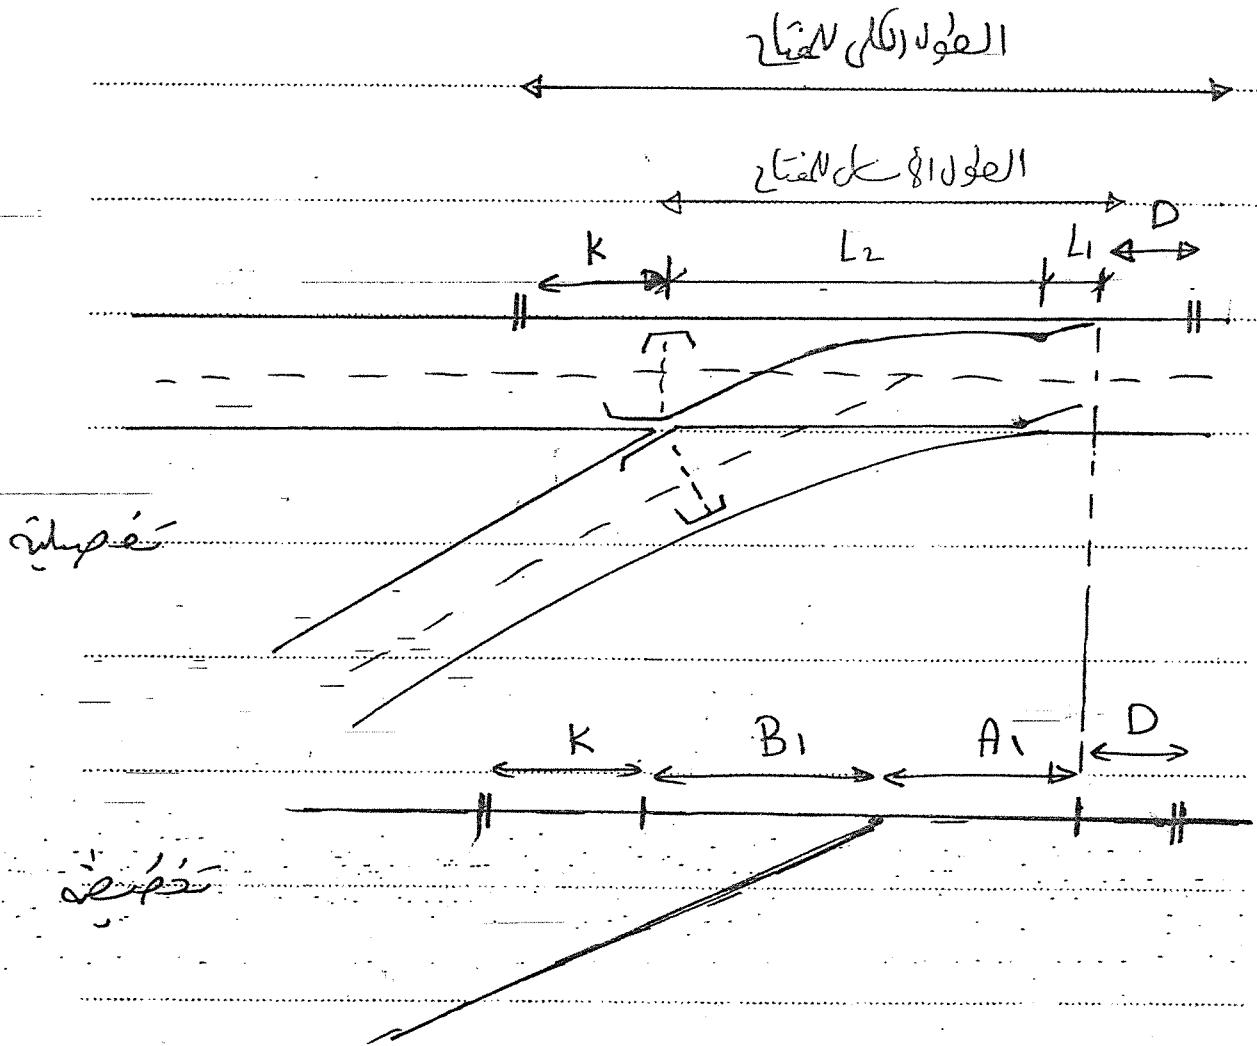 الطول الكلى للمفتاح
الطول الأصلى للمفتاح
K L2 L1 D
تفصيلية
K B1 A1 D